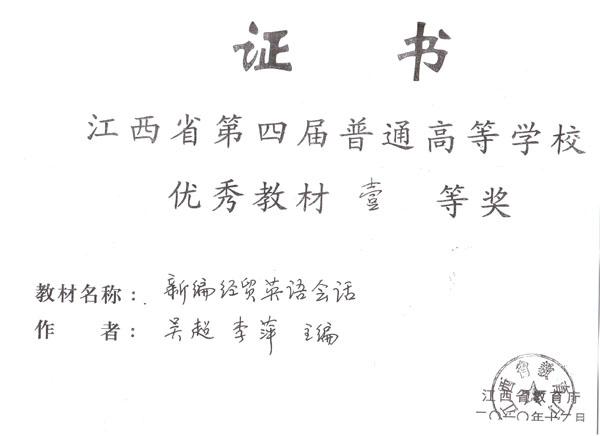 证 书
江西省第四届普通高等学校
优秀教材 壹 等奖
教材名称： 新编经贸英语会话
作 者： 吴超 李萍 主编
江西省教育厅
江西省教育厅